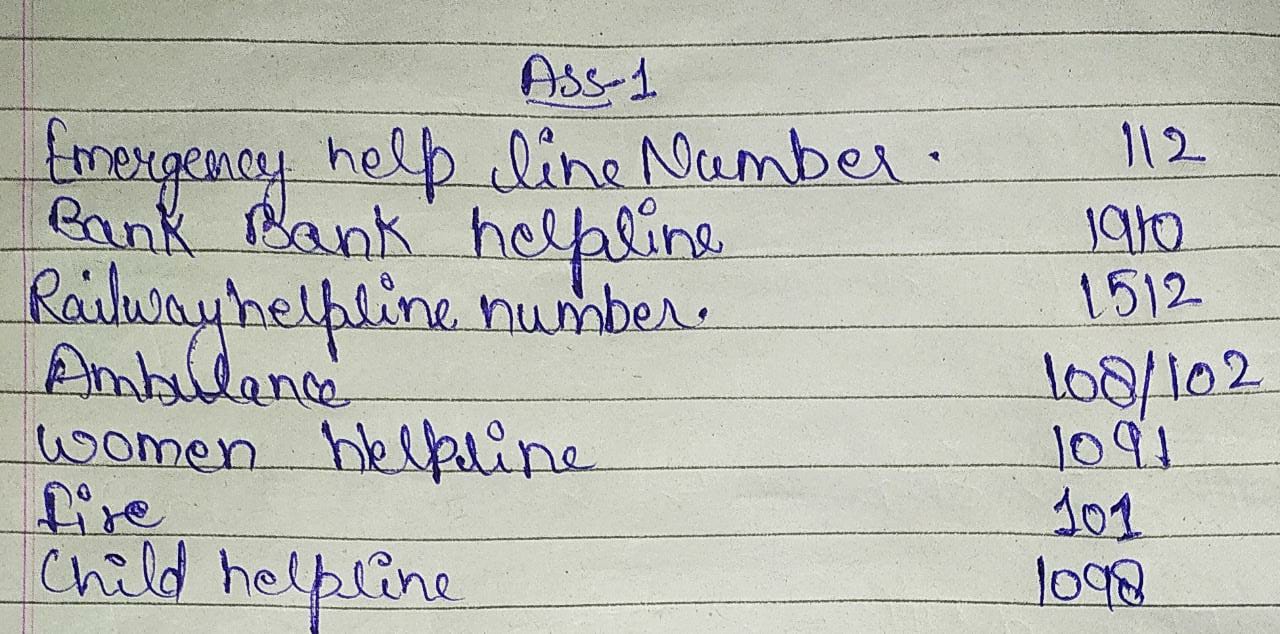 Ass-1
Emergency help line Number. 112
Bank Bank helpline 1910
Railway helpline number. 1512
Ambulance 108/102
women helpline 1091
fire 101
Child helpline 1098